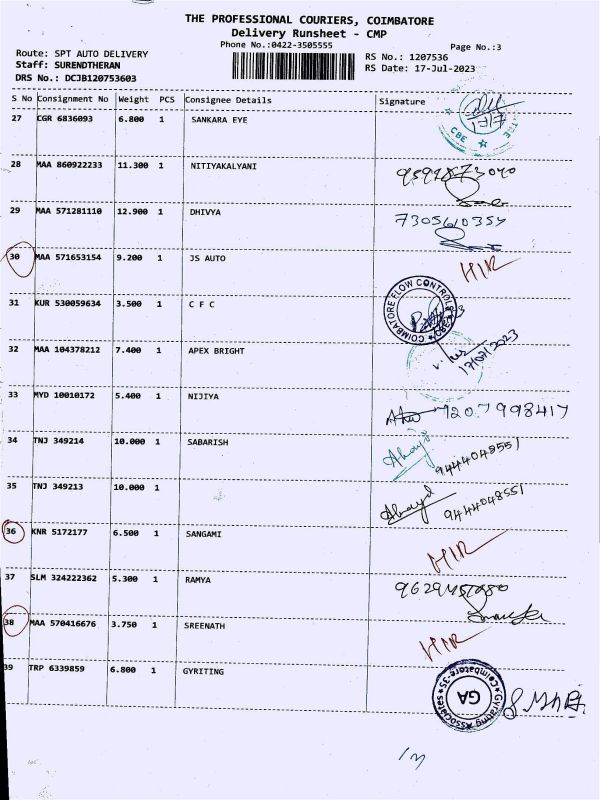 THE PROFESSIONAL COURIERS, COIMBATORE
Delivery Runsheet - CMP
Phone No.:0422-3505555
Page No.:3
Route: SPT AUTO DELIVERY
Staff: SURENDTHERAN
DRS No.: DCJB120753603
RS No.: 1207536
RS Date: 17-Jul-2023
S No Consignment No Weight PCS Consignee Details Signature
27 CGR 6836093 6.800 1 SANKARA EYE
CBE
28 MAA 860922233 11.300 1 NITIYAKALYANI
29 MAA 571281110 12.900 1 DHIVYA
7305610354
30 MAA 571653154 9.200 1 JS AUTO HIR
31 KUR 530059634 3.500 1 C F C
COIMBATORE FLOW CONTROL
32 MAA 104378212 7.400 1 APEX BRIGHT
17/07/2023
33 MYD 10010172 5.400 1 NIJIYA 7207998417
34 TNJ 349214 10.000 1 SABARISH
9444048551
35 TNJ 349213 10.000 1
9444048551
36 KNR 5172177 6.500 1 SANGAMI HIR
37 SLM 324222362 5.300 1 RAMYA
38 MAA 570416676 3.750 1 SREENATH HIR
39 TRP 6339859 6.800 1 GYRITING
Gyrating Associates Coimbatore-35
GA